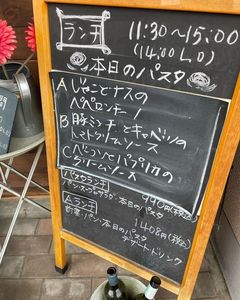 ランチ
11:30〜15:00
(14:00 L.O)
本日のパスタ
A じゃことナスの
ペペロンチーノ
B 豚ミンチとキャベツの
トマトクリームソース
C ベーコンとパプリカの
クリームソース
パスタランチ
990円(税込)
パン・スープ・サラダ・本日のパスタ
Aランチ
1408円(税込)
前菜・パン・本日のパスタ
デザート・ドリンク